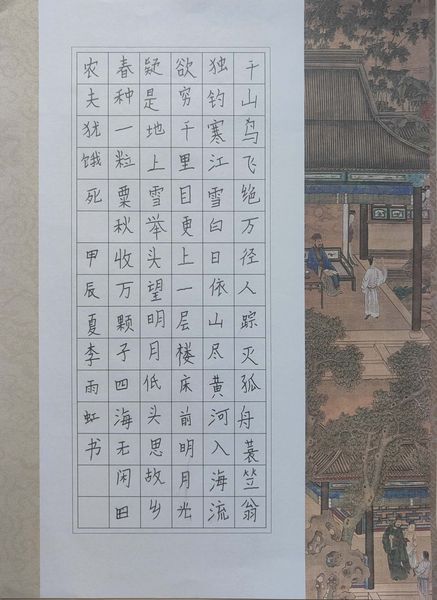 千山鸟飞绝万径人踪灭孤舟蓑笠翁
独钓寒江雪白日依山尽黄河入海流
欲穷千里目更上一层楼床前明月光
疑是地上雪举头望明月低头思故乡
春种一粒粟秋收万颗子四海无闲田
农夫犹饿死 甲辰夏李雨虹书